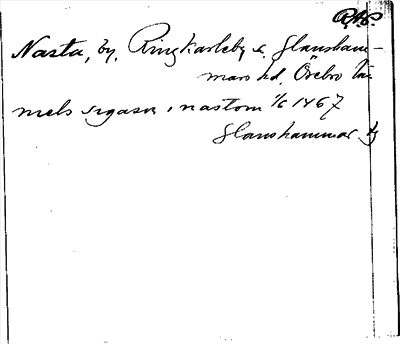 RAP.
Nasta, by, Ringkarleby s. Glansham-
mars hd, Örebro län
niels sigason i nastom 1/6 1467
Glanshammar